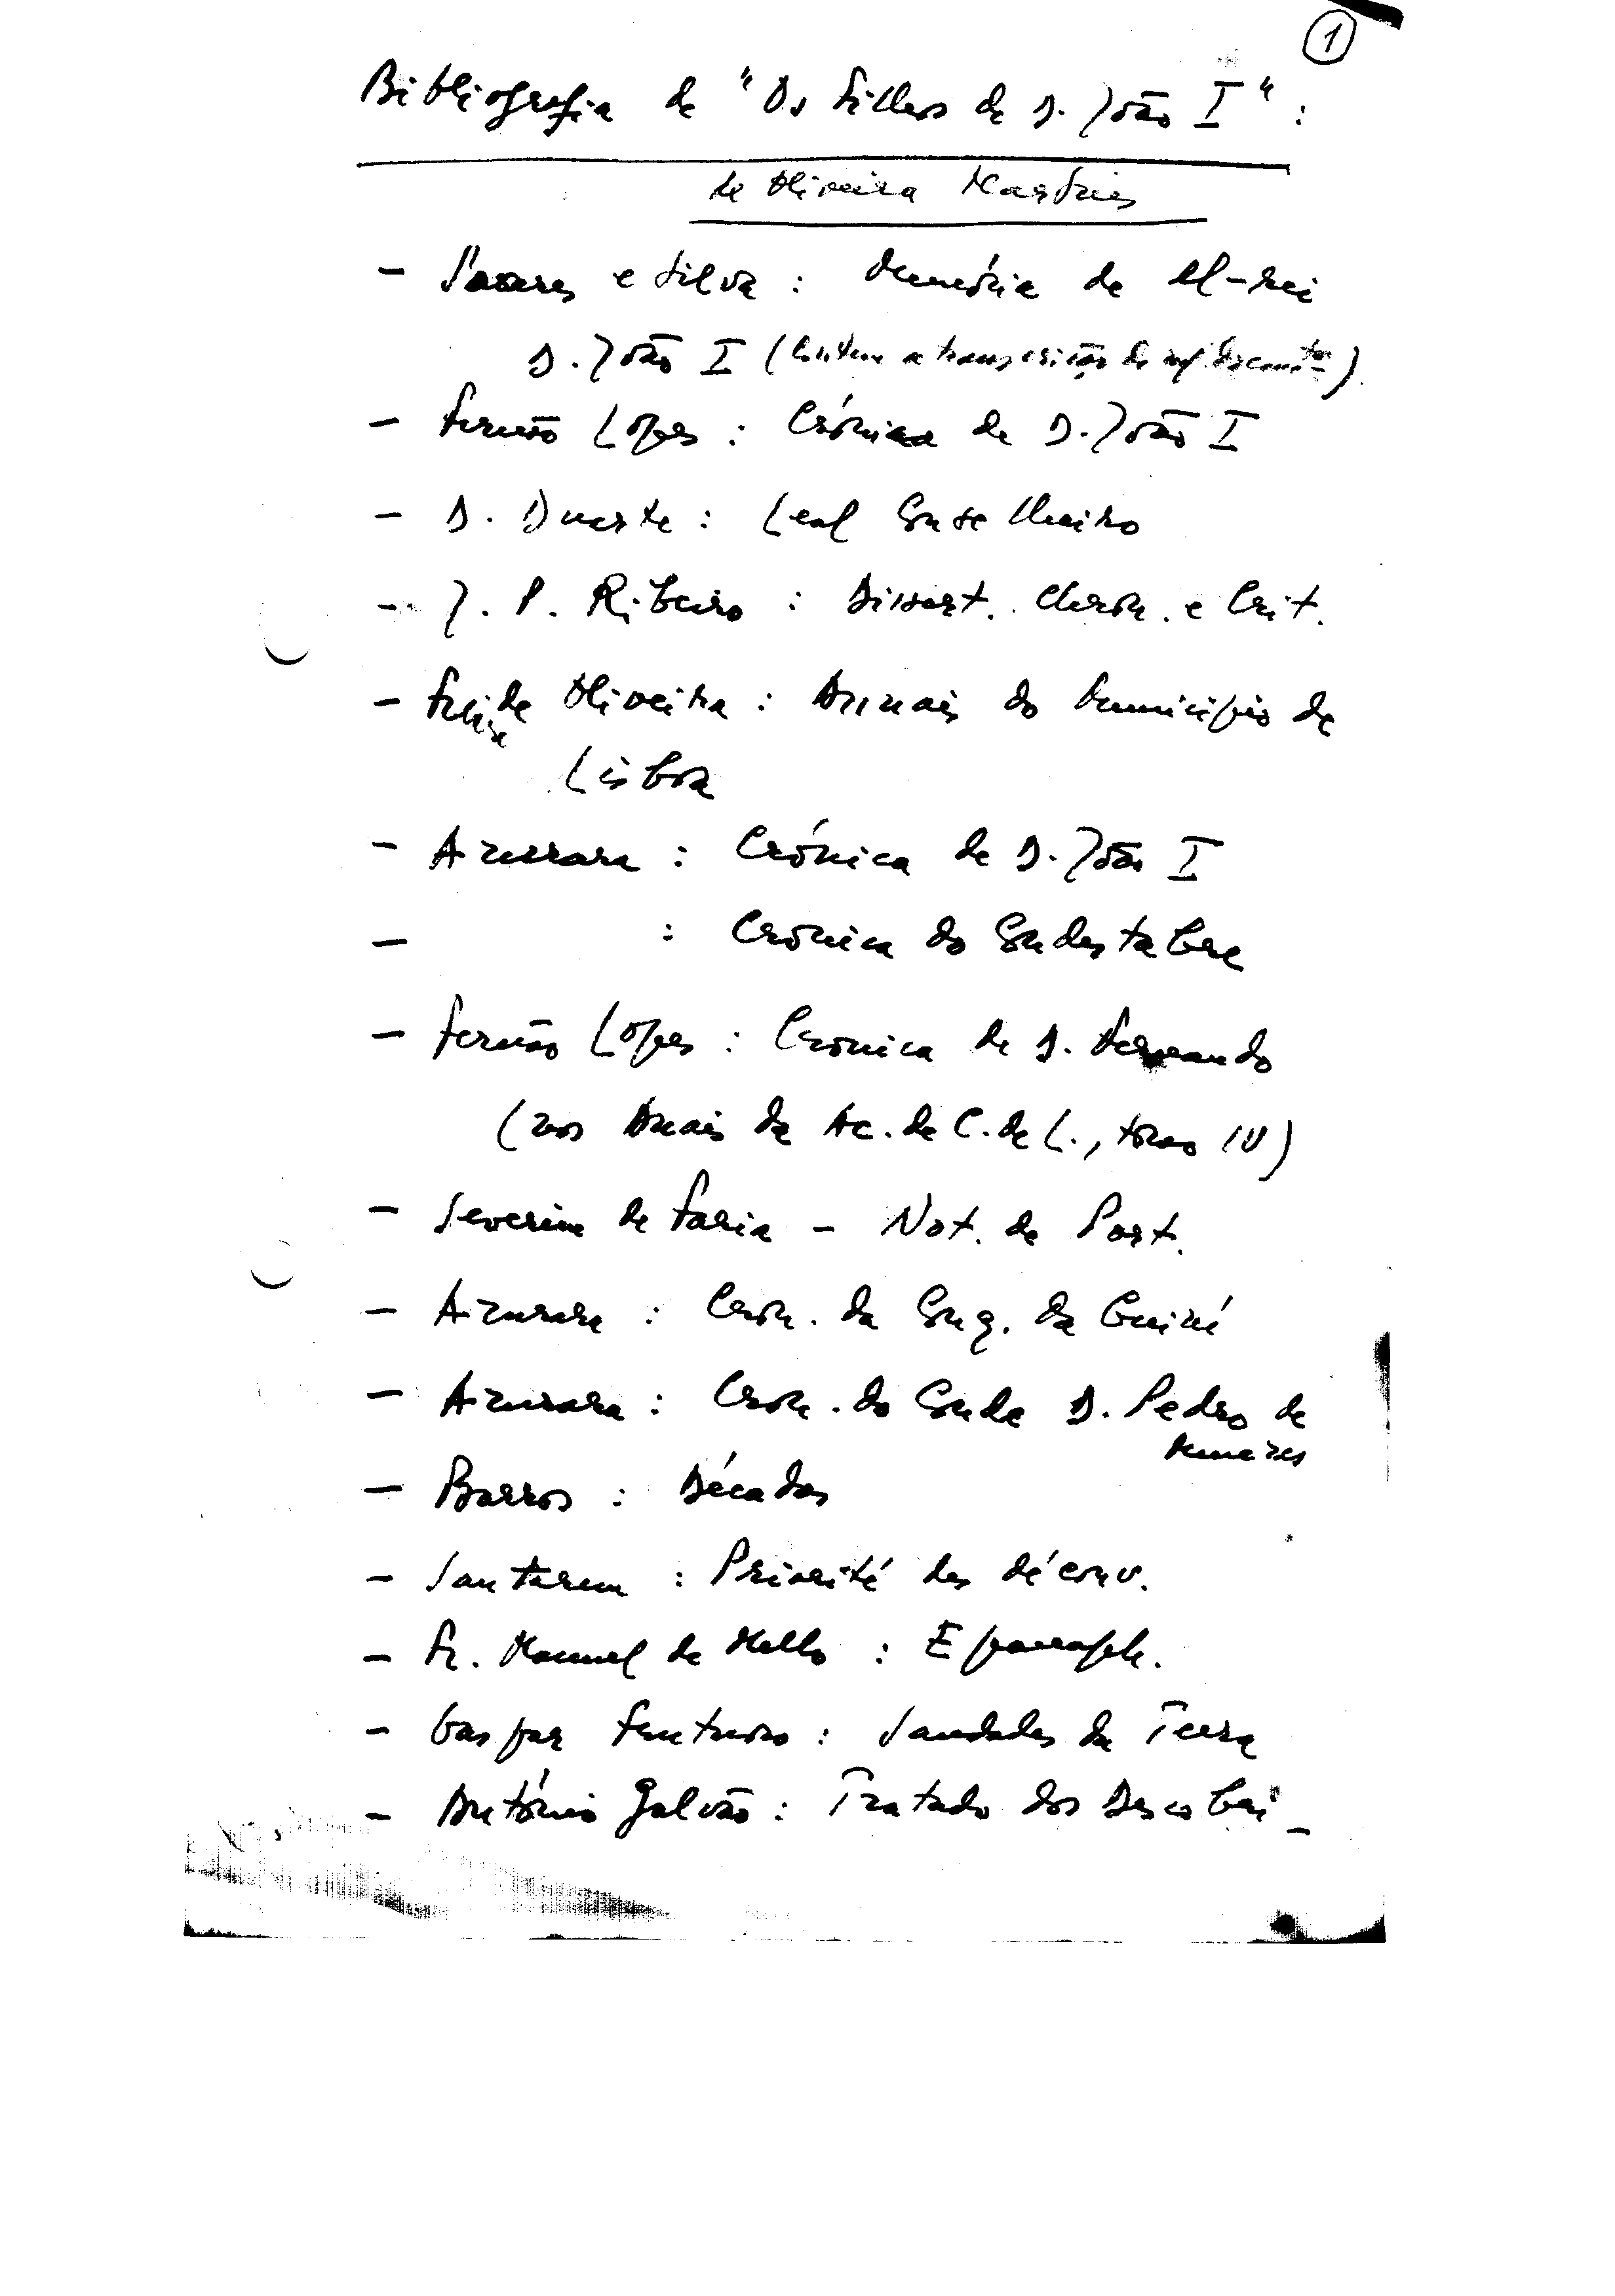 1
Bibliografia de "Os Filhos de D. João I" :
de Oliveira Martins
- Soares e Silva : Memória de El-rei
D. João I (Contem a transcrição de docum.tos)
- Fernão Lopes : Crónica de D. João I
- D. Duarte : Leal Conselheiro
- J. P. Ribeiro : Dissert. Chron. e Crit.
- Freire de Oliveira : Annais do Município de
Lisboa
- Azurara : Crónica de D. João I
- : Crónica do Condestabre
- Fernão Lopes : Crónica de D. Fernando
(nos Anais da Ac. de C. de L., tomo IV)
- Severim de Faria - Not. de Port.
- Azurara : Cron. da Conq. da Guiné
- Azurara : Cron. do Conde D. Pedro de
Menezes
- Barros : Décadas
- Santarem : Priorité des découv.
- Fr. Manuel de Mello : Epanaph.
- Gaspar Frutuoso : Saudades da Terra
- António Galvão : Tratado dos Descobri-